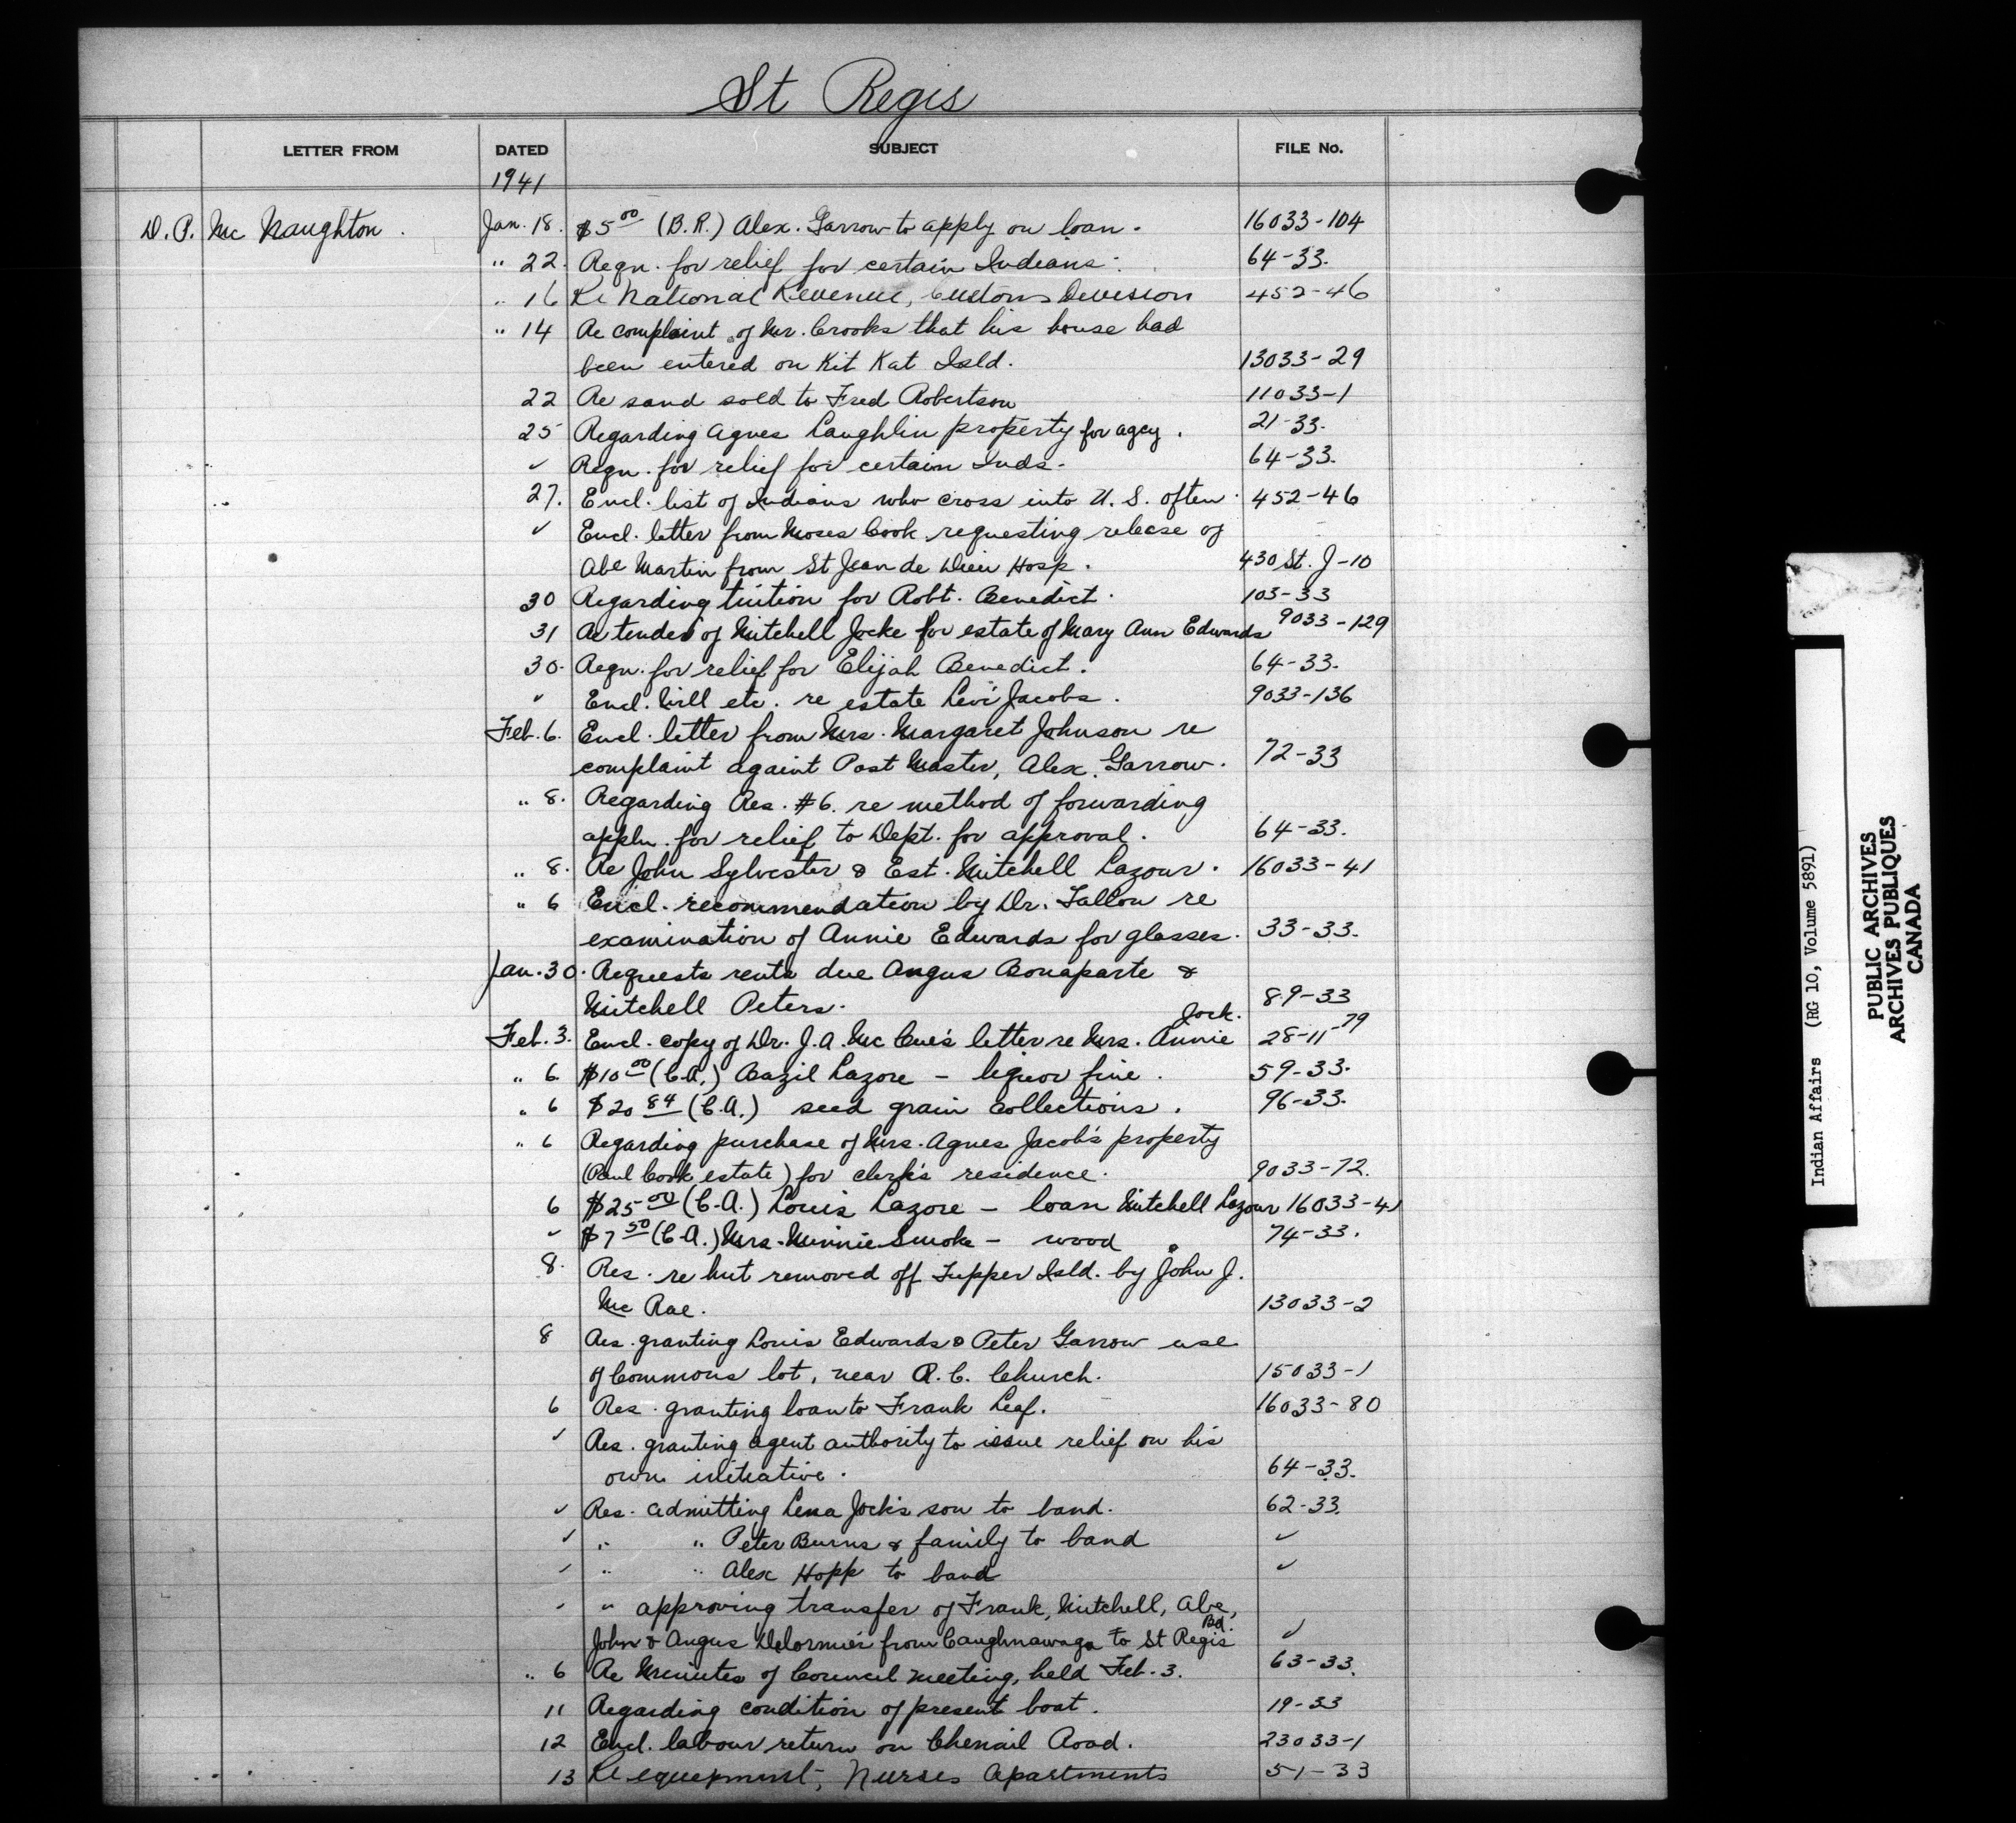 St Regis
LETTER FROM DATED SUBJECT FILE No.
1941
D. P. Mc Naughton. Jan. 18. $5 00 (B.R.) Alex. Garrow to apply on loan. 16033-104
" 22. Reqn. for relief for certain Indians. 64-33.
" 16 Re National Revenue, Customs Division 452-46
" 14 Re complaint of Mr. Crooks that his house had
been entered on Kit Kat Isld. 13033-29
22 Re sand sold to Fred Robertson 11033-1
25 Regarding Agnes Laughlin property for agcy. 21-33.
✓ Reqn. for relief for certain Inds. 64-33.
27. Encl. list of Indians who cross into U. S. often. 452-46
✓ Encl. letter from Moses Cook requesting release of
Abe Martin from St Jean de Dieu Hosp. 430 St. J-10
30 Regarding tuition for Robt. Benedict. 103-33
31 Re tender of Mitchell Jocke for estate of Mary Ann Edwards 9033-129
30. Reqn. for relief for Elijah Benedict. 64-33.
✓ Encl. Will etc. re estate Levi Jacobs. 9033-136
Feb. 6. Encl. letter from Mrs. Margaret Johnson re
complaint againt Post Master, Alex. Garrow. 72-33
" 8. Regarding Res. #6. re method of forwarding
appln. for relief to Dept. for approval. 64-33.
" 8. Re John Sylvester & Est. Mitchell Lazour. 16033-41
" 6 Encl. recommendation by Dr. Fallon re
examination of Annie Edwards for glasses. 33-33.
Jan. 30. Requests rents due Angus Bonaparte &
Mitchell Peters. 89-33
Jock.
Feb. 3. Encl. copy of Dr. J. A. Mc Cue's letter re Mrs. Annie 28-11-79
" 6. $10 00 (C.A.) Bazil Lazore - liquor fine. 59-33.
" 6 $20 84 (C.A.) seed grain collections. 96-33.
" 6 Regarding purchase of Mrs. Agnes Jacob's property
(Paul Cook estate) for clerk's residence. 9033-72.
6 $25 00 (C.A.) Louis Lazore - loan Mitchell Lazour 16033-41
✓ $7 50 (C.A.) Mrs. Minnie Smoke - wood 74-33.
8. Res. re hut removed off Tupper Isld. by John J.
Mc Rae. 13033-2
8 Res. granting Louis Edwards & Peter Garrow use
of Commons lot, near R. C. Church. 15033-1
6 Res. granting loan to Frank Leaf. 16033-80
✓ Res. granting agent authority to issue relief on his
own initiative. 64-33.
✓ Res. admitting Lena Jock's son to band. 62-33.
✓ " " Peter Burns & family to band ✓
✓ " " Alex Hopp to band ✓
✓ " approving transfer of Frank, Mitchell, Abe,
Bd.
John & Angus Delormier from Caughnawaga to St Regis ✓
" 6 Re Minutes of Council meeting, held Feb. 3. 63-33.
11 Regarding condition of present boat. 19-33
12 Encl. labour return on Chenail Road. 23033-1
13 Re equipment, Nurses Apartments 51-33
Indian Affairs (RG 10, Volume 5891)
PUBLIC ARCHIVES
ARCHIVES PUBLIQUES
CANADA